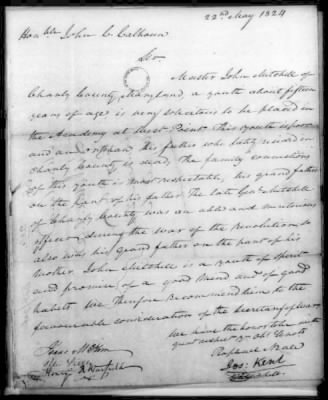 22nd May 1824
Honble John C Calhoun
Sir
Master John Mitchell of
Charles County, Maryland, a youth about fifteen
years of age is very solicitous to be placed in
the Academy at West Point This youth is poor
and an orphan his father who lately resided in
Charles County is dead, The family connections
of this youth is most respectable, his grand father
on the part of his father the late Genl Mitchell
of Charles County was an able and meritorious
officer during the war of the Revolution so
also was his grand father on the part of his
mother John Mitchell is a youth of spirit
and promise of a good mind and of good
habits We therefore recommend him to the
favourable consideration of the Secretary of War
We have the honor to be with
great respect yr obt Servts
Raphael Neale
Jos: Kent
Isaac McKim
Henry R Warfield